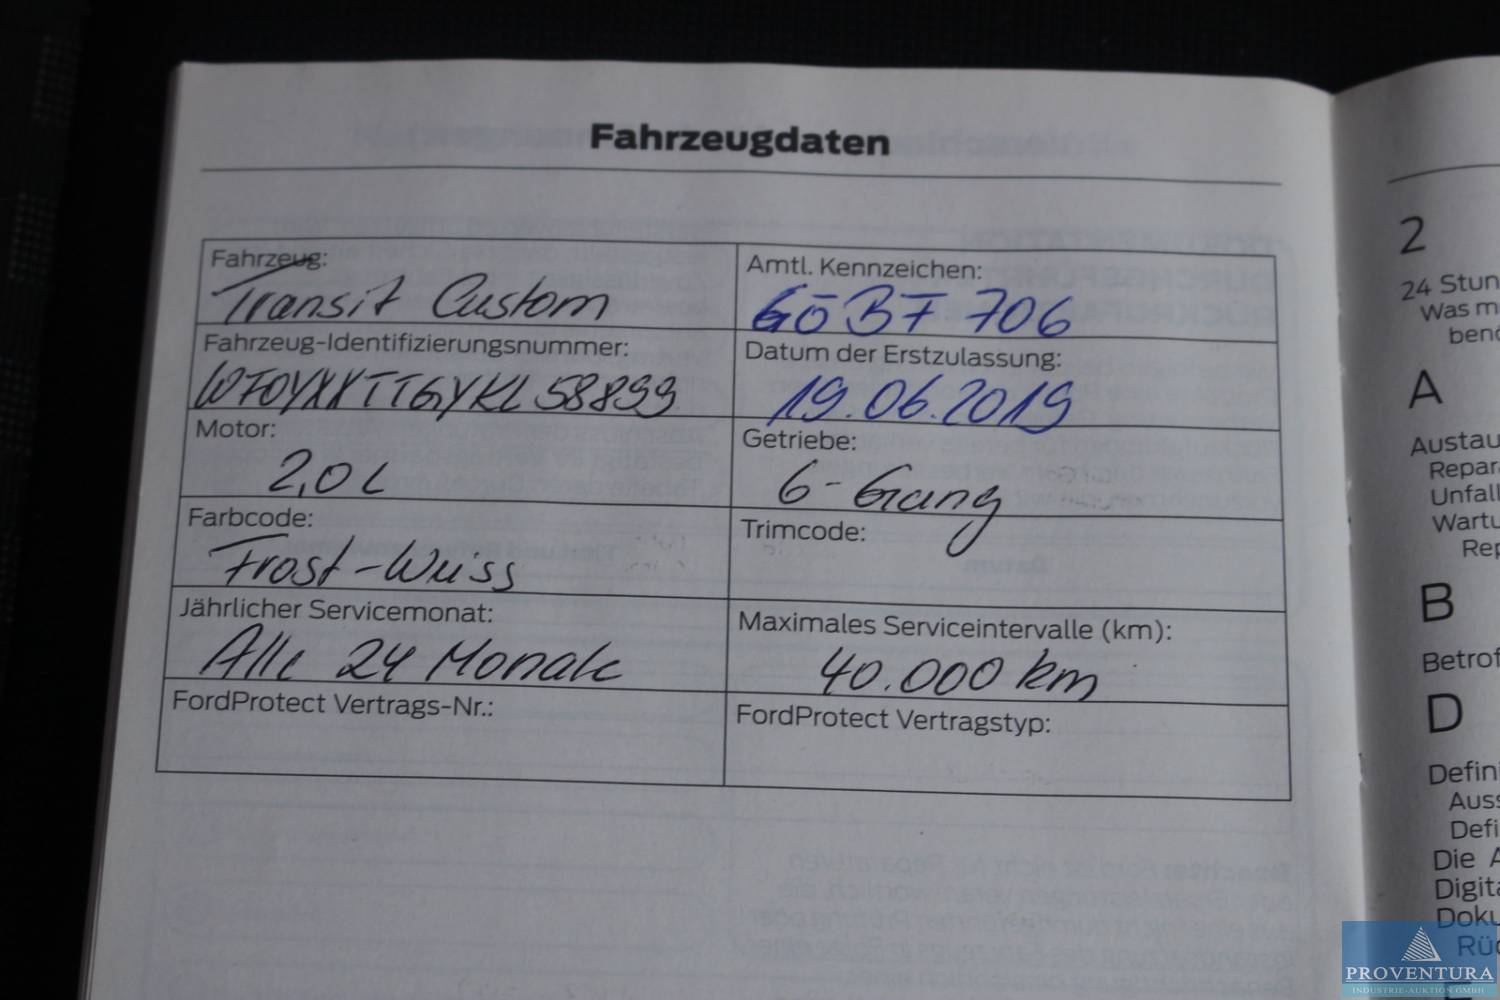 Fahrzeugdaten
Fahrzeug:
Transit Custom
Amtl. Kennzeichen:
GÖ BF 706
Fahrzeug-Identifizierungsnummer:
WF0YXXTTGYKL58899
Datum der Erstzulassung:
19.06.2019
Motor:
2,0 L
Getriebe:
6-Gang
Farbcode:
Frost-Weiss
Trimcode:
Jährlicher Servicemonat:
Alle 24 Monate
Maximales Serviceintervalle (km):
40.000 km
FordProtect Vertrags-Nr.:
FordProtect Vertragstyp:
2
24 Stun
Was m
benö
A
Austau
Repar
Unfall
Wartu
Rep
B
Betrof
D
Defini
Auss
Defi
Die A
Digita
Doku
Rüc
PROVENTURA
INDUSTRIE-AUKTION GMBH